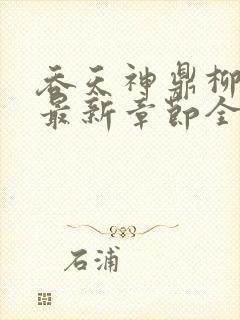 吞天神鼎柳
最新章节全
石浦